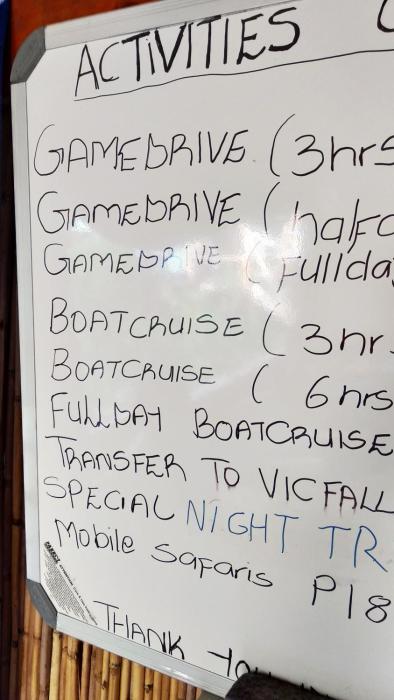 ACTIVITIES
GAMEDRIVE (3hrs
GAMEDRIVE (half
GAMEDRIVE (Fullda
BOATCRUISE (3hr
BOATCRUISE ( 6hrs
FULLDAY BOATCRUISE
TRANSFER TO VICFALL
SPECIAL NIGHT TR
Mobile Safaris P18
THANK You